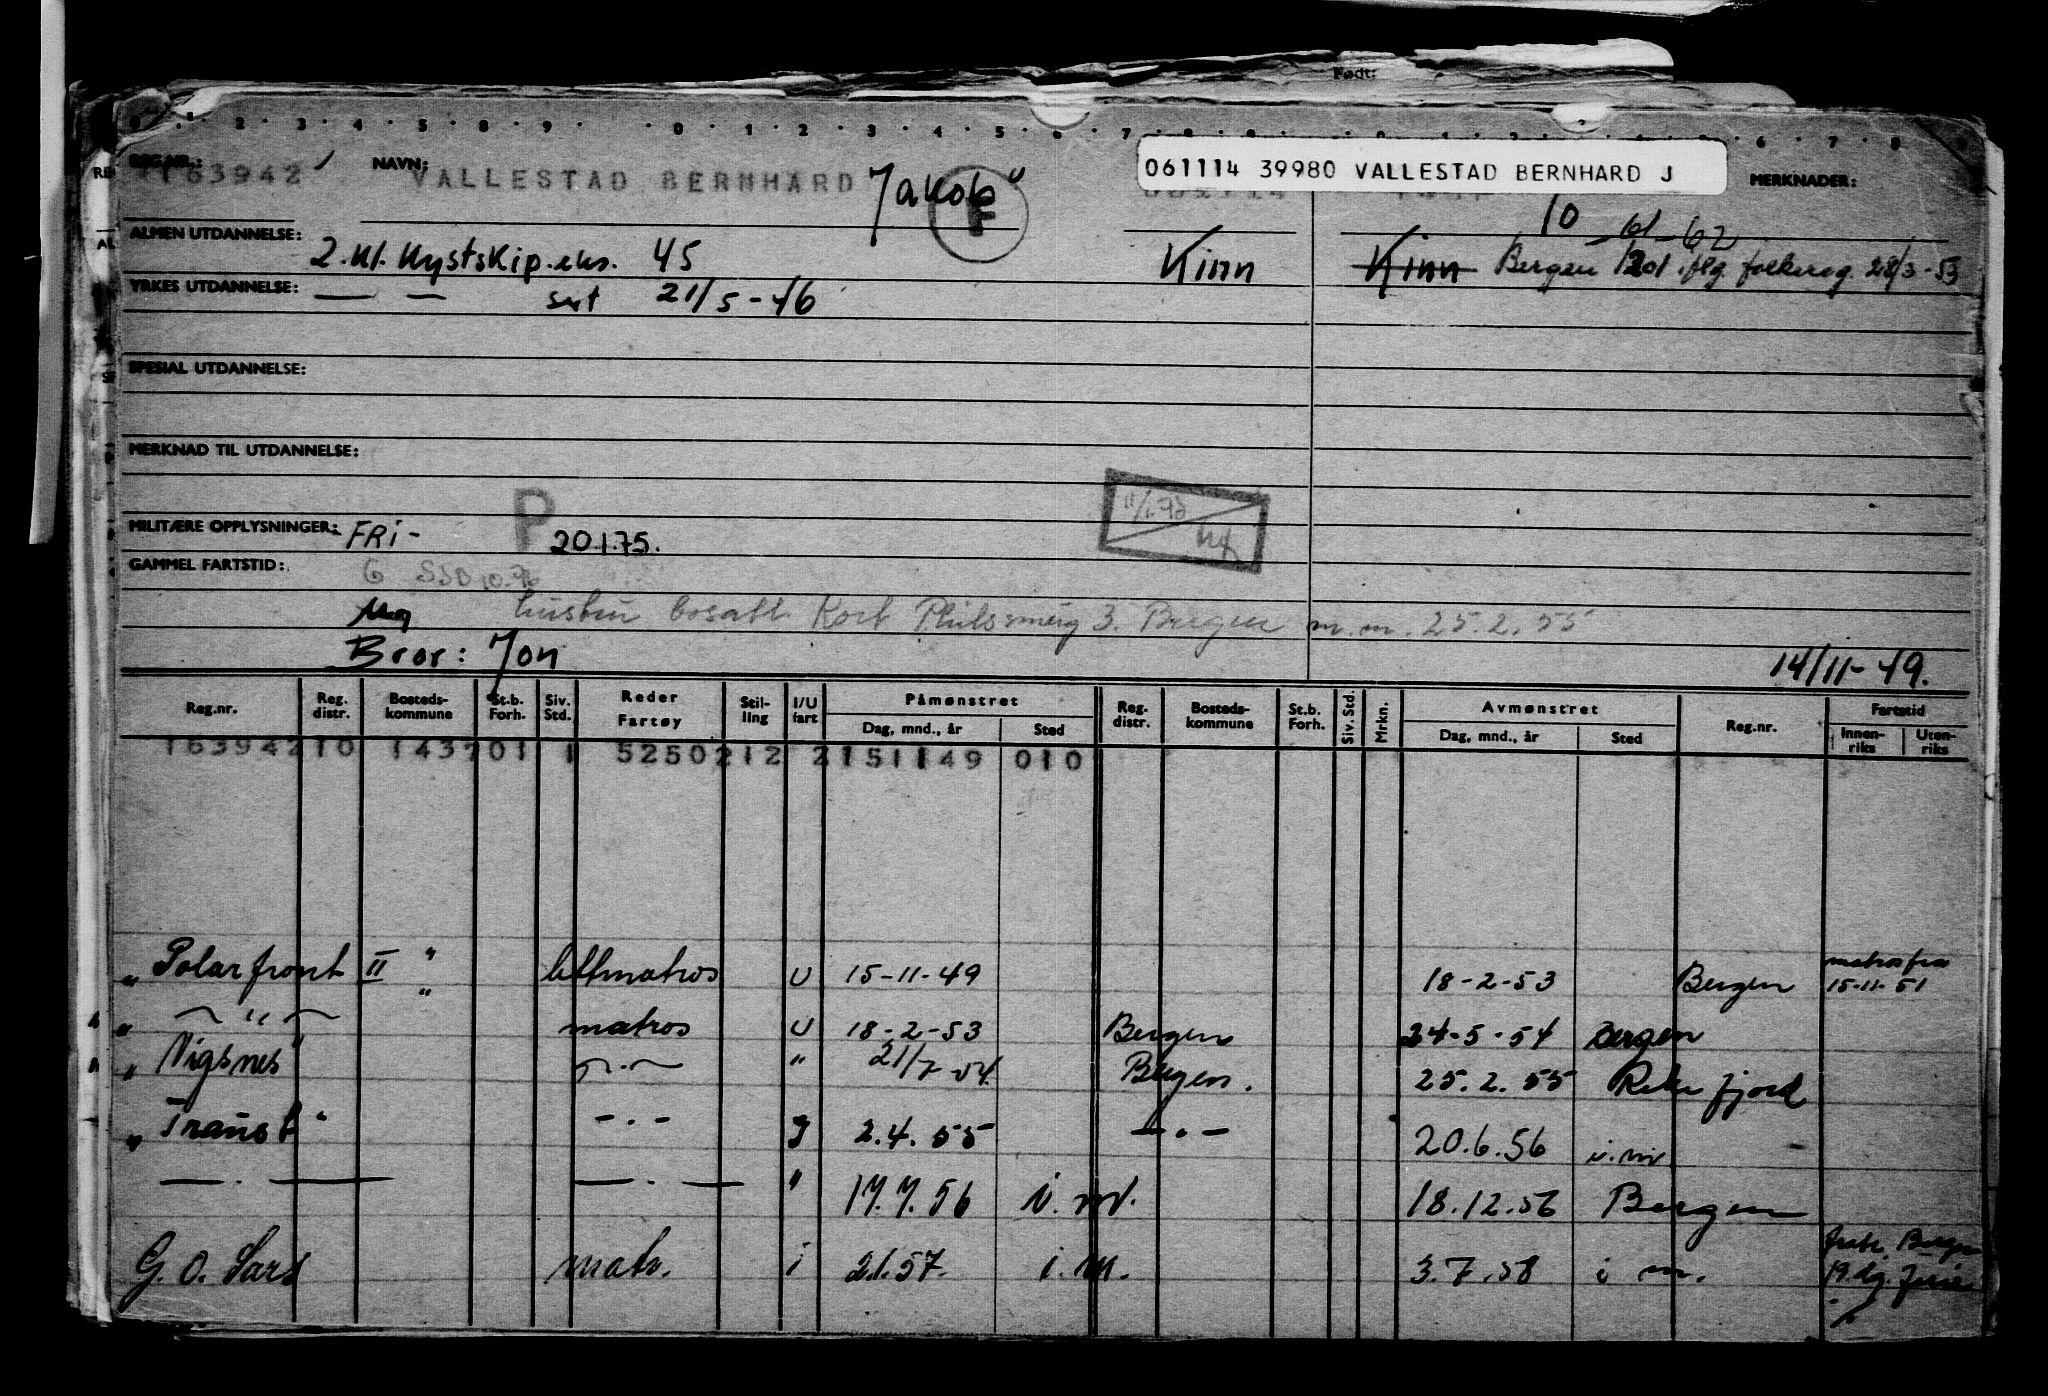 Født:
REG.NR.: NAVN: 061114 39980 VALLESTAD BERNHARD J MERKNADER:
163942 VALLESTAD BERNHARD Jakob F
10
ALMEN UTDANNELSE: 2. kl. kystskip.eks. 45 Kinn Kinn Bergen 1201 flg. folkereg. 28/3-53
YRKES UTDANNELSE: — — sert 21/5-46
SPESIAL UTDANNELSE:
MERKNAD TIL UTDANNELSE:
MILITÆRE OPPLYSNINGER: FRI- P 20.1.75.
GAMMEL FARTSTID: G
hustru bosatt Kort 3. Bergen m.m. 25.2.55
Bror: Jon 14/11-49.
Reg.nr. Reg. distr. Bosteds-kommune St.b. Forh. Siv. Std. Reder Fartøy Stil-ling I/U fart Påmønstret Dag, mnd., år Sted Reg. distr. Bosteds-kommune St.b. Forh. Siv. Std. Mrkn. Avmønstret Dag, mnd., år Sted Reg.nr. Fartstid Innen-riks Uten-riks
163942 10 1437 01 1 5250212 2 151149 010
" Polarfront II " lettmatros U 15-11-49 18-2-53 Bergen matros fra 15-11-51
" — " — " matros U 18-2-53 Bergen 24-5-54 Bergen
" Vigsnes" — . — " 21/7-54. Bergen. 25.2.55
" " - . - I 2.4.55 — . — 20.6.56 i.m
— . — — . — " 17.7.56 i.m. 18.12.56 Bergen
G. O. Sars matr. i 2.1.57. i.m. 3.7.58 i m. fratr. Bergen 19 dg. ferie